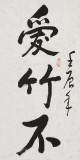 愛竹不
壬辰年